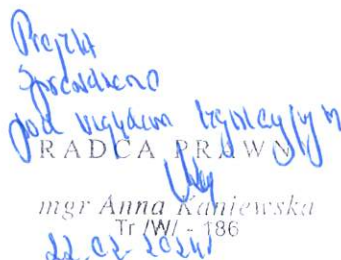 Projekt
Sprawdzono
pod względem legislacyjnym
RADCA PRAWNY
mgr Anna Kaniewska
Tr /W/ - 186
22.02.2024r